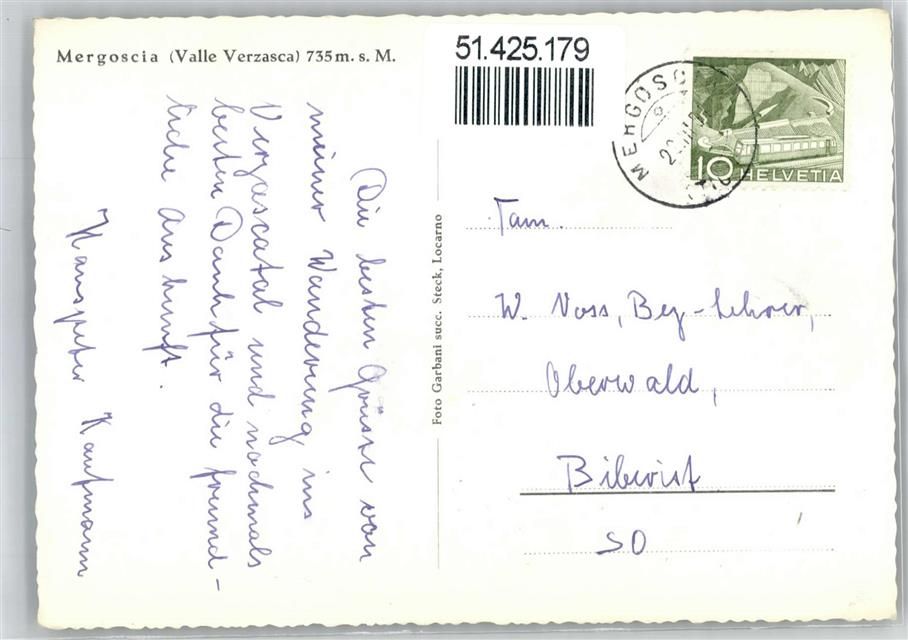 Mergoscia (Valle Verzasca) 735 m. s. M.
51.425.179
MERGOSC
10 HELVETIA
Die besten Grüsse von
meiner Wanderung ins
Verzascatal und nochmals
besten Dank für die freund-
liche Auskunft.
Hanspeter Kaufmann
Foto Garbani succ. Steck, Locarno
Fam.
W. Voss, Bez-Lehrer,
Oberwald,
Biberist
SO